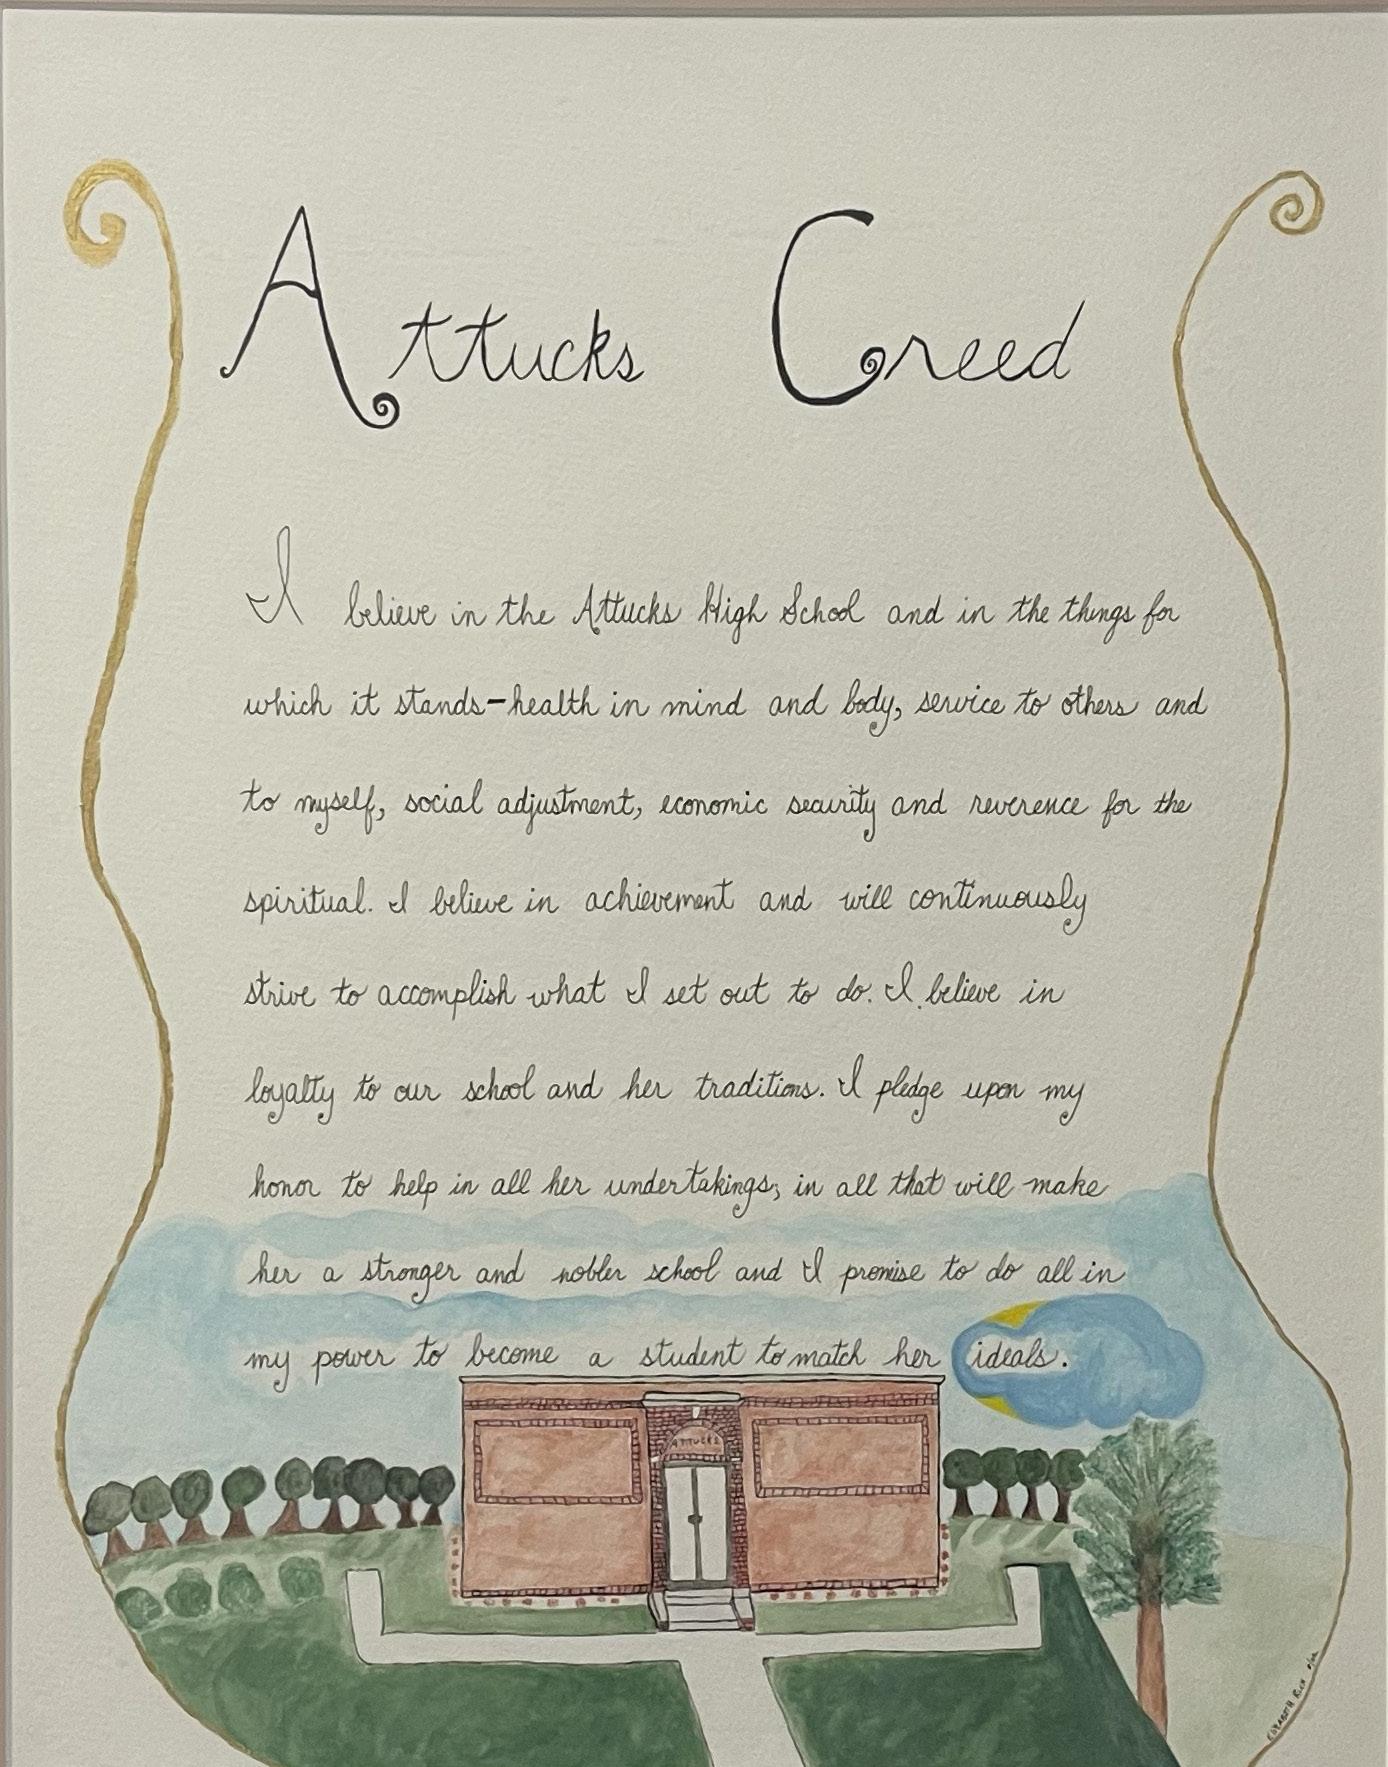 Attucks Creed
I believe in the Attucks High School and in the things for
which it stands-health in mind and body, service to others and
to myself, social adjustment, economic security and reverence for the
spiritual. I believe in achievement and will continuously
strive to accomplish what I set out to do. I believe in
loyalty to our school and her traditions. I pledge upon my
honor to help in all her undertakings; in all that will make
her a stronger and nobler school and I promise to do all in
my power to become a student to match her ideals.
ATTUCKS
ELIZABETH RICH